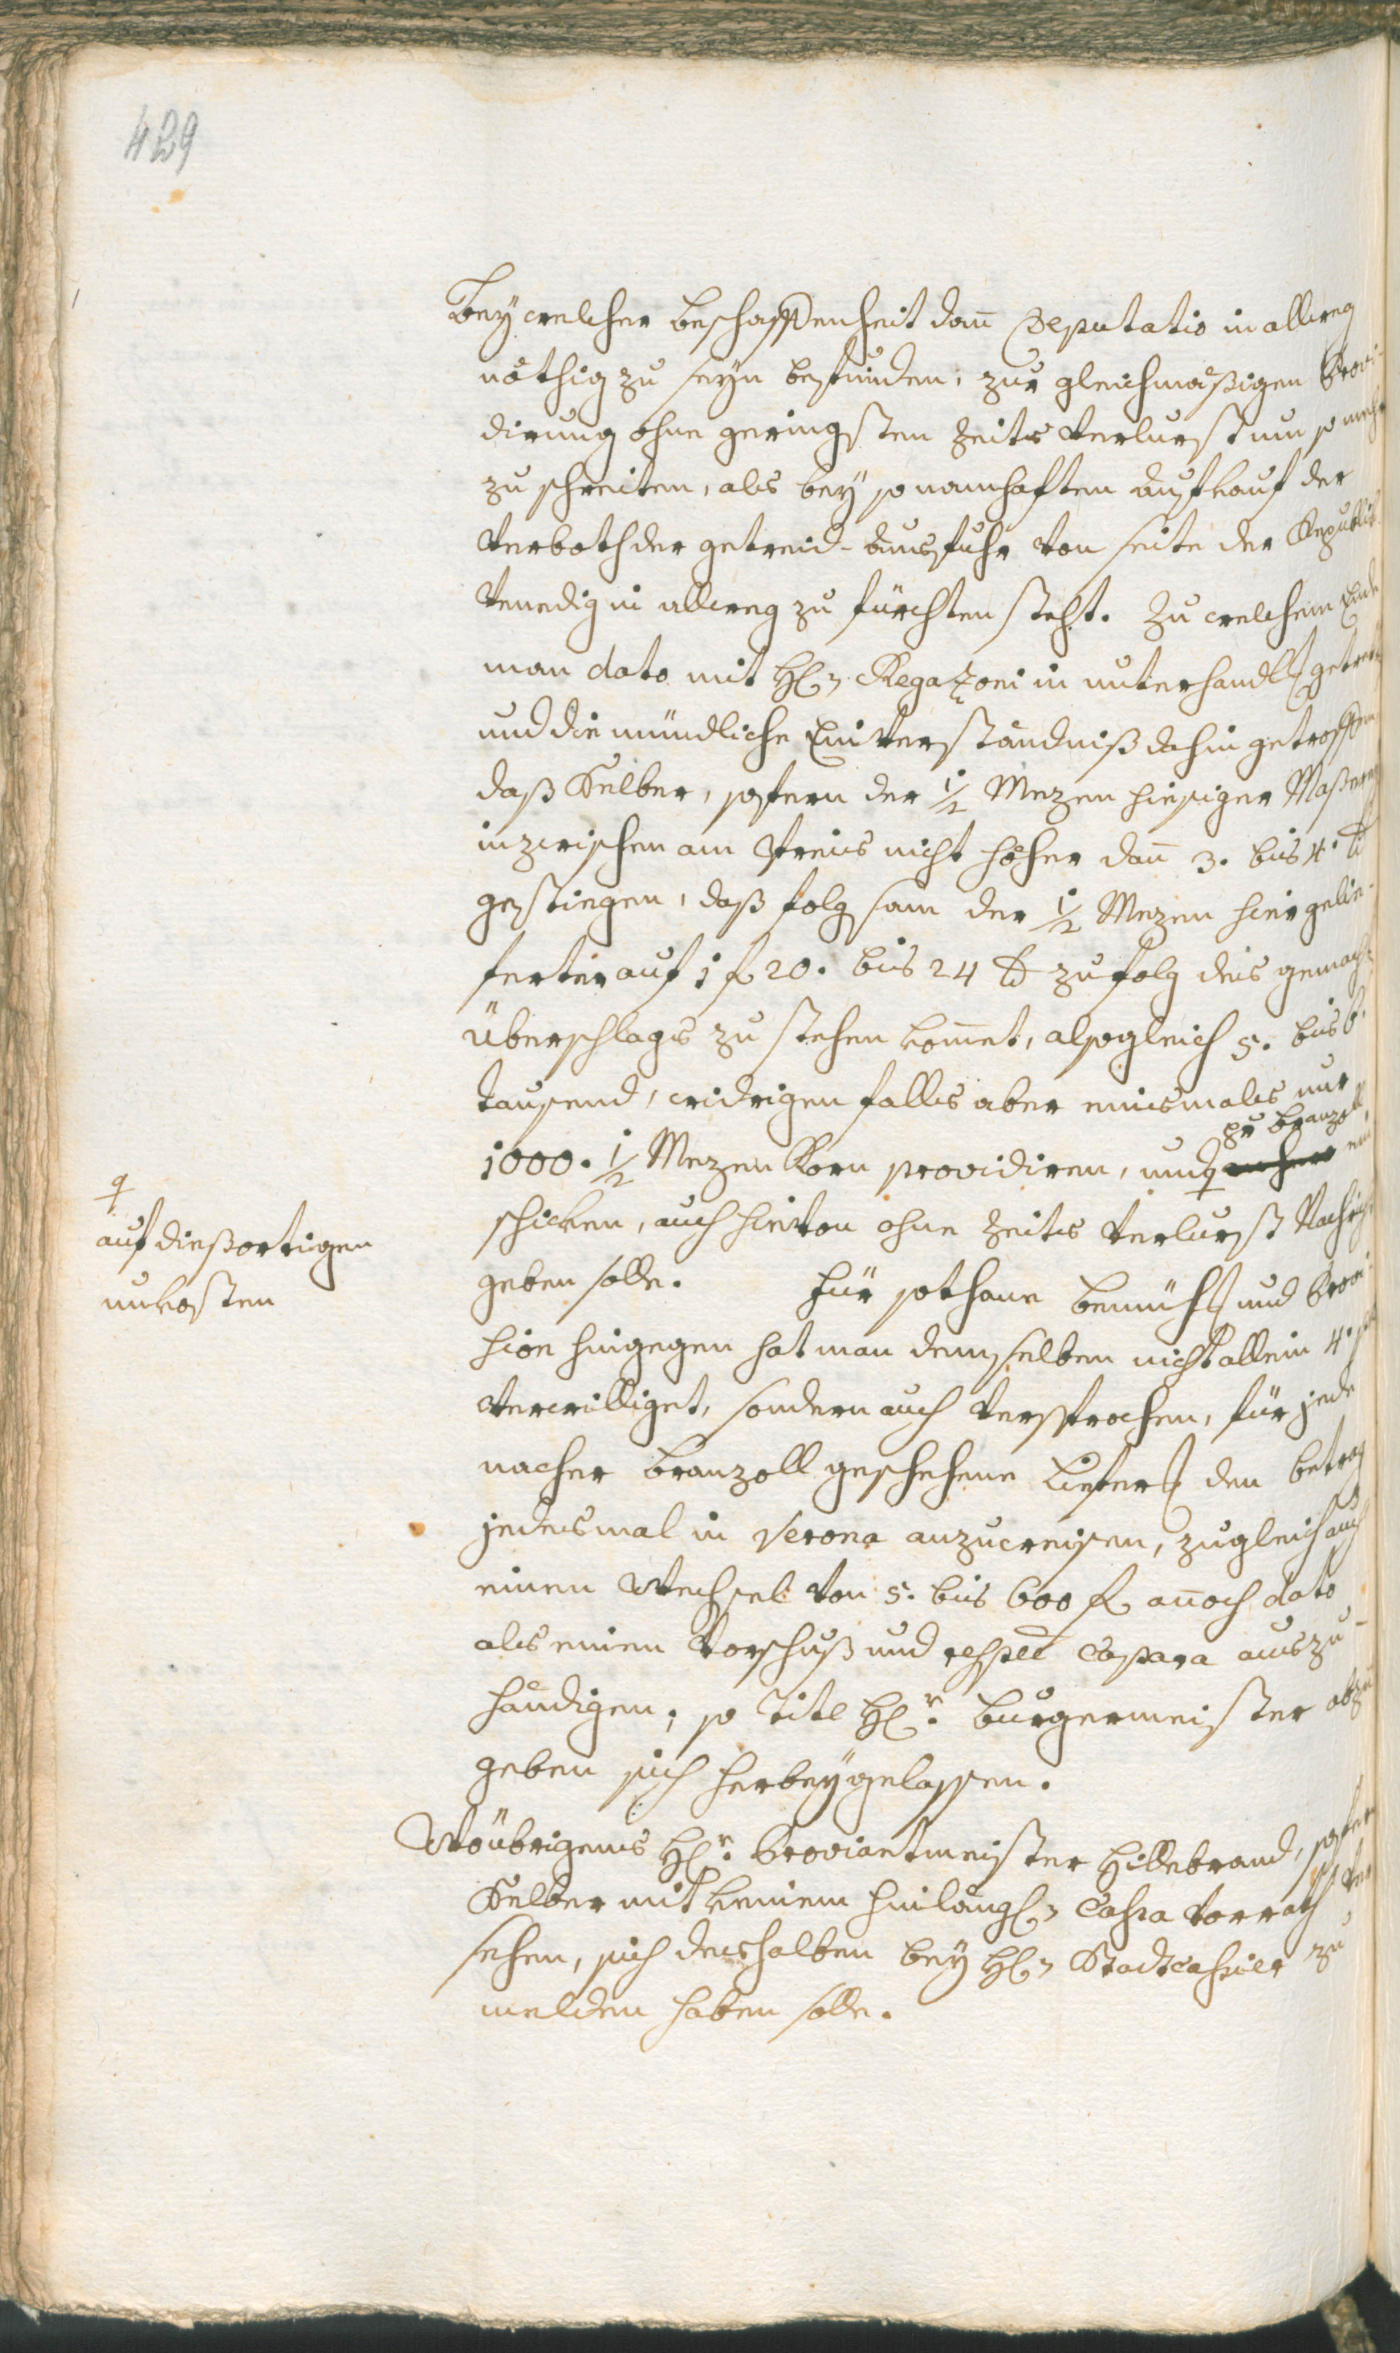 429
Bey welcher beschaffenheit dan̄ Deputatio in allweg
nöthig zu seyn befunden, zur gleichmäßigen Provi-
dirung ohne geringsten Zeits Verlurst um so mehr
zu schreiten, als bey so namhaften Aufkauf der
Verboth der getreid-Ausfuhr von seite der Republic
Venedig in allweg zu fürchten steht. Zu welchem Ende
man dato mit H. Regazoni in unterhandl. getretten
und die mündliche Einverständniß dahin getroffen
daß Selber, sofern der 1/2 Mezen hiesiger Maßerey
inzwischen am Preis nicht höher dan̄ 3. bis 4. x
gestiegen, daß folgsam der 1/2 Mezen hiergelie-
ferter auf 1 f 20. bis 24 x zufolg des gemacht
Überschlags zu stehen kom̄et, alsogleich 5. bis 6.
tausend, widrigen falls aber einsmals nur
zu Branzoll
1000. 1/2 Mezen Korn providiren, und
schicken, auch hievon ohne Zeits Verlurst Nachricht
geben solle. Für sothane bemüh. und Provi-
sion hingegen hat man demselben nicht allein 4.
verwilliget, sondern auch versprochen, für jede
nacher Branzoll geschehene Liefer. den betrag
jedesmal in Verona anzuweisen, zugleich auch
einen Wechsel von 5. bis 600 f. an̄och dato
als einen Vorschuß und respec Capara auszu-
händigen; so Titl H.r Burgermeister abzu
geben sich herbeygelassen.
Wo übrigens H.r Proviantmeister Hillebrand, sofern
Selber mit keinem hinlängl. Cassa Vorrath ver
sehen, sich deshalben bey H. Stadtcassier zu
melden haben solle.
auf diesortigen
unkosten